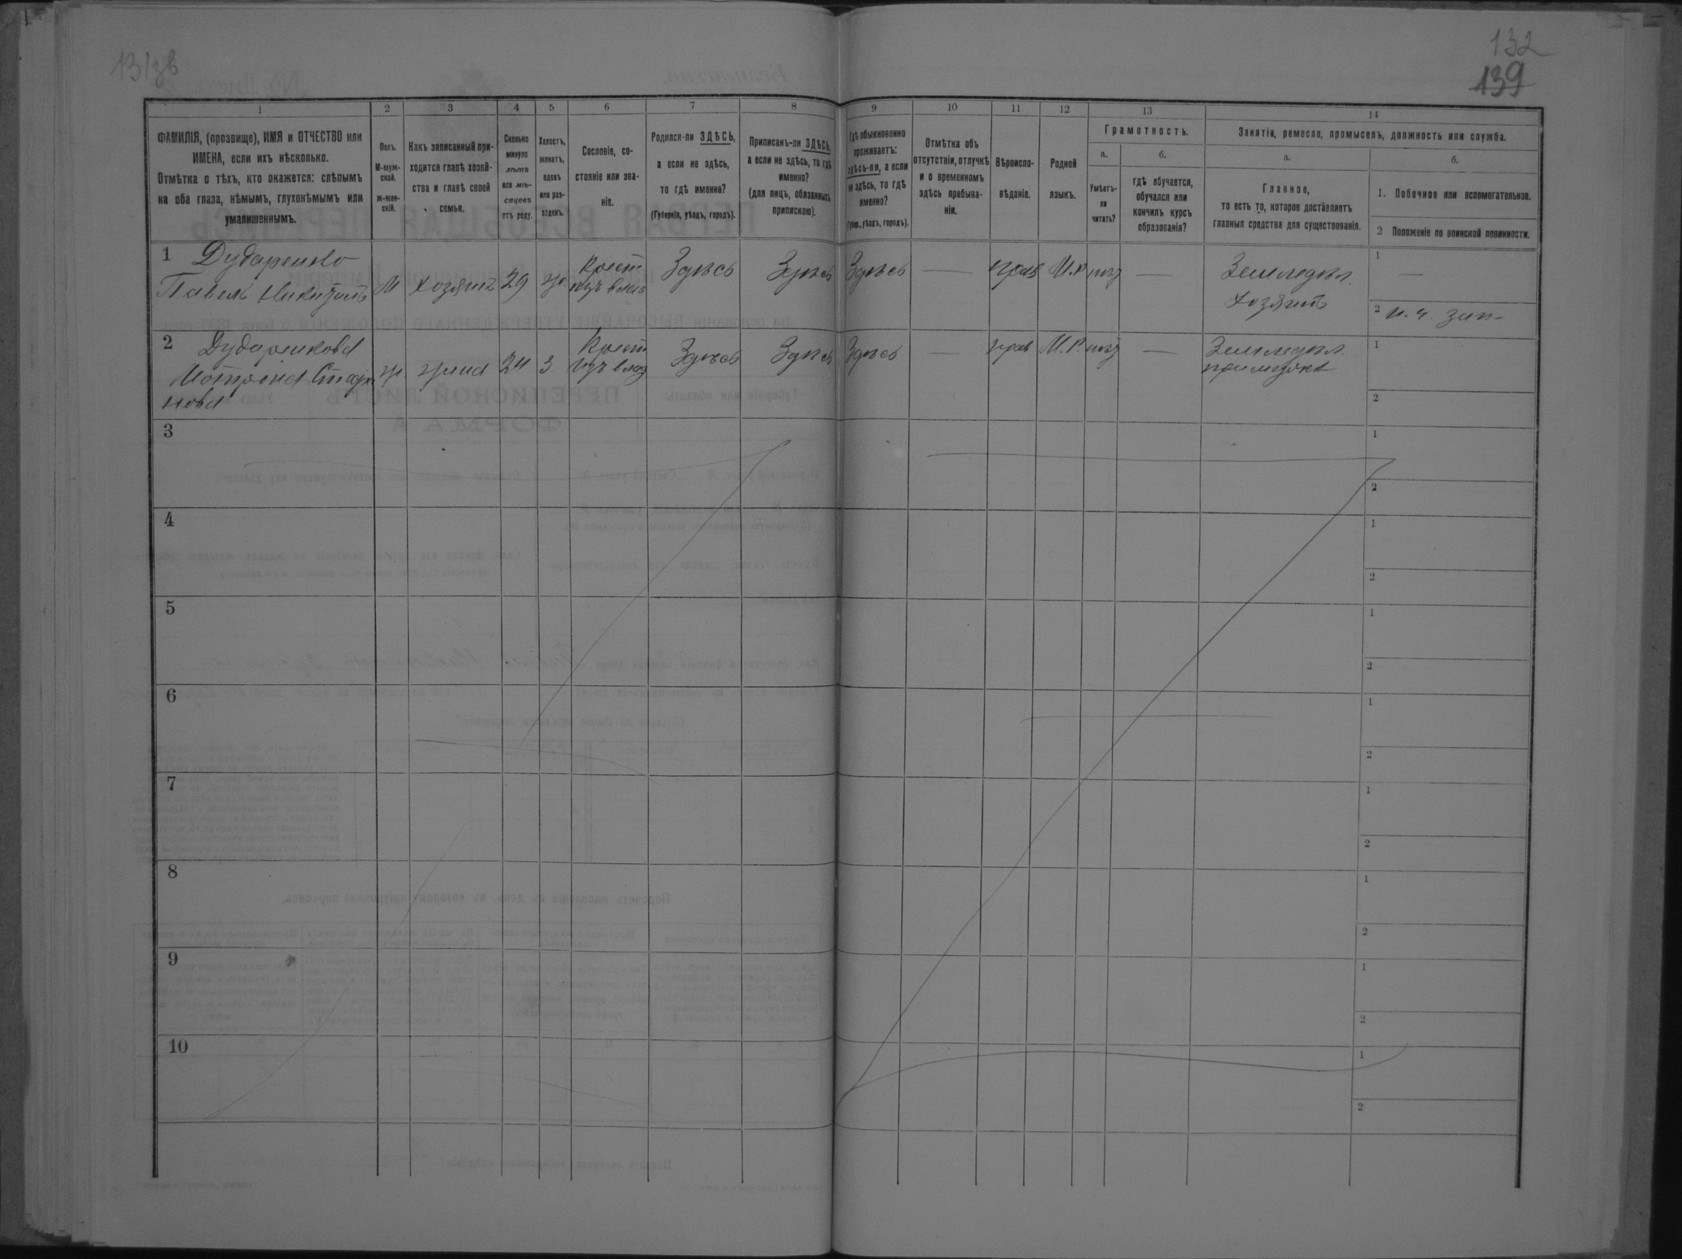 131зв
132
139
1
2
3
4
5
6
7
8
9
10
11
12
13
14
ФАМИЛІЯ, (прозвище), ИМЯ и ОТЧЕСТВО или
ИМЕНА, если ихъ нѣсколько.
Отмѣтка о тѣхъ, кто окажется: слѣпымъ
на оба глаза, нѣмымъ, глухонѣмымъ или
умалишеннымъ.
Полъ.
М-муж-
ской.
Ж-жен-
скій.
Какъ записанный при-
ходится главѣ хозяй-
ства и главѣ своей
семьи.
Сколько
минуло
лѣтъ
или мѣ-
сяцевъ
отъ роду.
Холостъ,
женатъ,
вдовъ
или раз-
веденъ.
Сословіе, со-
стояніе или зва-
ніе.
Родился-ли ЗДѢСЬ,
а если не здѣсь,
то гдѣ именно?
(Губернія, уѣздъ, городъ).
Приписанъ-ли ЗДѢСЬ,
а если не здѣсь, то гдѣ
именно?
(для лицъ, обязанныхъ
припискою).
Гдѣ обыкновенно
проживаетъ:
здѣсь-ли, а если
не здѣсь, то гдѣ
именно?
(Губер., уѣздъ, городъ).
Отмѣтка объ
отсутствіи, отлучкѣ
и о временномъ
здѣсь пребыва-
ніи.
Вѣроиспо-
вѣданіе.
Родной
языкъ.
Грамотность.
а.
Умѣетъ-
ли
читать?
б.
гдѣ обучается,
обучался или
кончилъ курсъ
образованія?
Занятіе, ремесло, промыселъ, должность или служба.
а.
Главное,
то есть то, которое доставляетъ
главныя средства для существованія.
б.
1. Побочное или вспомогательное.
2 Положеніе по воинской повинности.
1 Дударенко
Павелъ Никитовъ
М
хозяинъ
29
ж
Крест
изъ влад
Здѣсь
Здѣсь
Здѣсь
—
прав
М.Р
нѣт
—
Земледѣл.
хозяинъ
1 —
2 и. ч. зап-
2 Дударенкова
Мотрона
нова
ж
жена
24
З
Крест
изъ влад
Здѣсь
Здѣсь
Здѣсь
—
прав
М.Р
нѣт
—
Земледѣл.
1
2
3
1
2
4
1
2
5
1
2
6
1
2
7
1
2
8
1
2
9
1
2
10
1
2